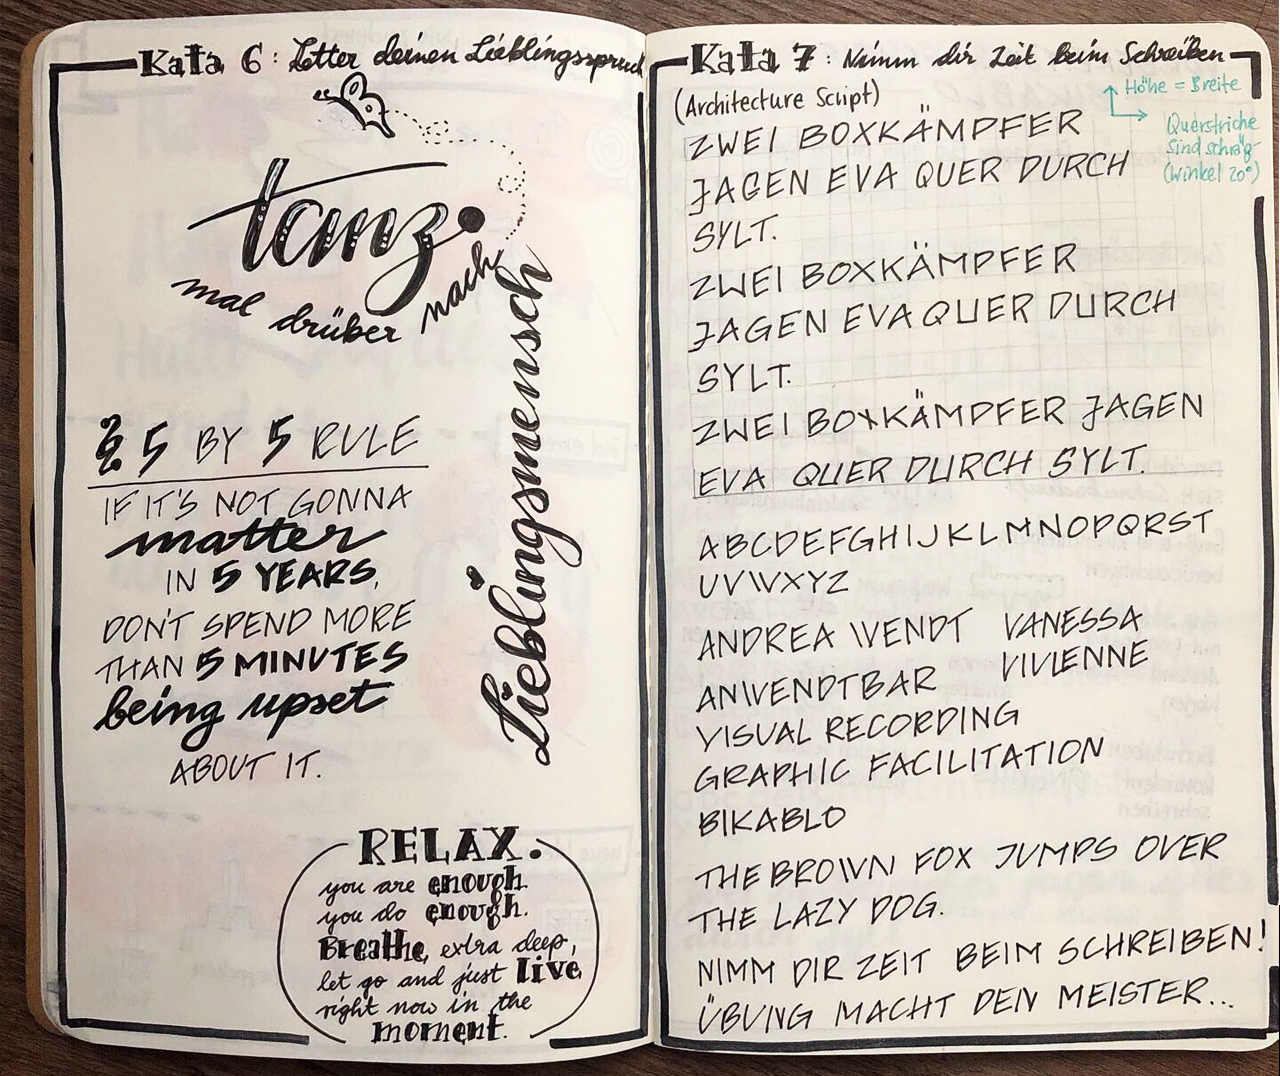 Kata 6: Letter deinen Lieblingsspruch
tanz.
mal drüber nach
Lieblingsmensch
5 BY 5 RULE
IF IT'S NOT GONNA
matter
IN 5 YEARS,
DON'T SPEND MORE
THAN 5 MINUTES
being upset
ABOUT IT.
RELAX.
you are enough.
you do enough.
Breathe, extra deep,
let go and just live
right now in the
moment.
Kata 7: Nimm dir Zeit beim Schreiben
(Architecture Script)
Höhe = Breite
Querstriche
sind schräg
(Winkel 20°)
ZWEI BOXKÄMPFER
JAGEN EVA QUER DURCH
SYLT.
ZWEI BOXKÄMPFER
JAGEN EVA QUER DURCH
SYLT.
ZWEI BOXKÄMPFER JAGEN
EVA QUER DURCH SYLT.
ABCDEFGHIJKLMNOPQRST
UVWXYZ
ANDREA WENDT VANESSA
ANWENDTBAR VIVIENNE
VISUAL RECORDING
GRAPHIC FACILITATION
BIKABLO
THE BROWN FOX JUMPS OVER
THE LAZY DOG.
NIMM DIR ZEIT BEIM SCHREIBEN!
ÜBUNG MACHT DEN MEISTER...